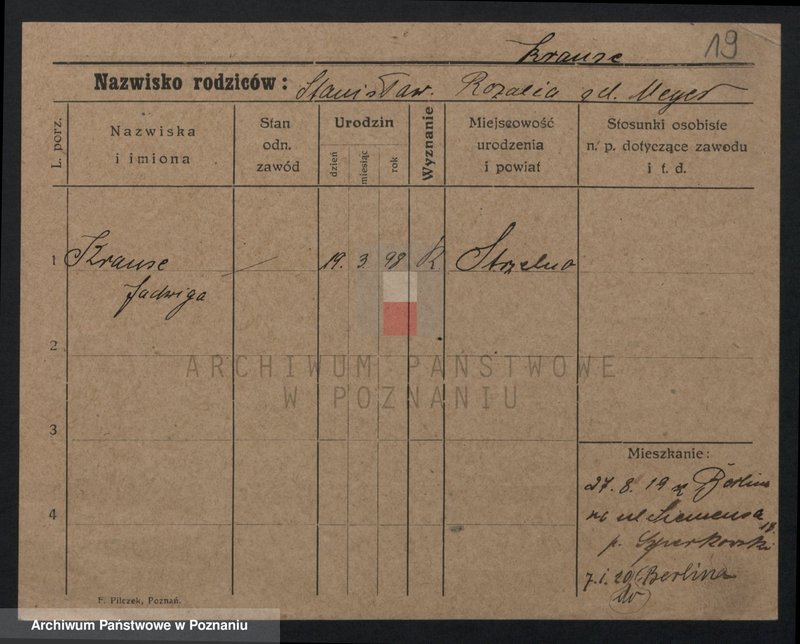 Krause 19
Nazwisko rodziców: Stanisław. Rozalia gd. Meyer
L. porz.
Nazwiska
i imiona
Stan
odn.
zawód
Urodzin
dzień
miesiąc
rok
Wyznanie
Miejscowość
urodzenia
i powiat
Stosunki osobiste
n. p. dotyczące zawodu
i t. d.
1 Krause — 19. 3. 98 K Strzelno
Jadwiga
2
ARCHIWUM PAŃSTWOWE
W POZNANIU
3
Mieszkanie:
27. 8. 19 z Berlina
na ul Siemensa
4
19.
p. Szperkowski
7. 1. 20 Berlina
do
F. Pilczek, Poznań.
Archiwum Państwowe w Poznaniu